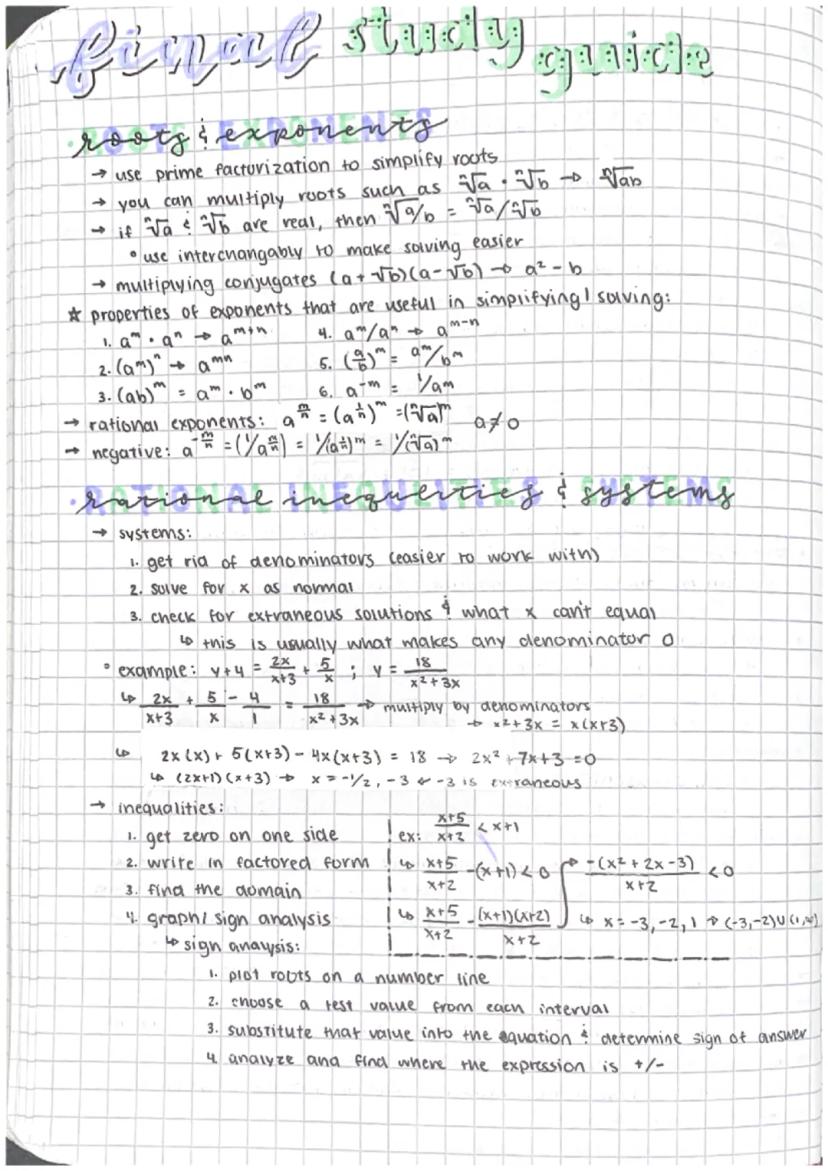 final study guide
·roots & exponents
→ use prime factorization to simplify roots
→ you can multiply roots such as ⁿ√a · ⁿ√b → ⁿ√ab
→ if ⁿ√a & ⁿ√b are real, then ⁿ√a/b = ⁿ√a/ⁿ√b
• use interchangably to make solving easier
→ multiplying conjugates (a+√b)(a-√b) → a² - b
★ properties of exponents that are useful in simplifying/solving:
1. aᵐ · aⁿ → aᵐ⁺ⁿ 4. aᵐ/aⁿ → aᵐ⁻ⁿ
2. (aᵐ)ⁿ → aᵐⁿ 5. (a/b)ᵐ = aᵐ/bᵐ
3. (ab)ᵐ = aᵐ · bᵐ 6. a⁻ᵐ = 1/aᵐ
→ rational exponents: a^(m/n) = (a^(1/n))ᵐ = (ⁿ√a)ᵐ a≠0
→ negative: a^(-m/n) = (1/a^(m/n)) = 1/(a^(1/n))ᵐ = 1/(ⁿ√a)ᵐ
·rational inequlities & systems
→ systems:
1. get rid of denominators (easier to work with)
2. solve for x as normal
3. check for extraneous solutions & what x can't equal
↳ this is usually what makes any denominator 0
• example: y+4 = 2x/x+3 + 5/x ; y = 18/x²+3x
↳ 2x/x+3 + 5/x - 4/1 = 18/x²+3x → multiply by denominators
→ x²+3x = x(x+3)
↳ 2x(x) + 5(x+3) - 4x(x+3) = 18 → 2x² +7x+3 =0
↳ (2x+1)(x+3) → x = -1/2, -3 ← -3 is extraneous
→ inequalities:
1. get zero on one side
2. write in factored form
3. find the domain
4. graph/sign analysis
ex: x+5/x+2 < x+1
↳ x+5/x+2 -(x+1) < 0
↳ x+5/x+2 - (x+1)(x+2)/x+2
→ -(x²+2x-3)/x+2 < 0
↳ x = -3, -2, 1 → (-3,-2)∪(1,∞)
↳ sign analysis:
1. plot roots on a number line
2. choose a test value from each interval
3. substitute that value into the equation & determine sign of answer
4. analyze and find where the expression is +/-